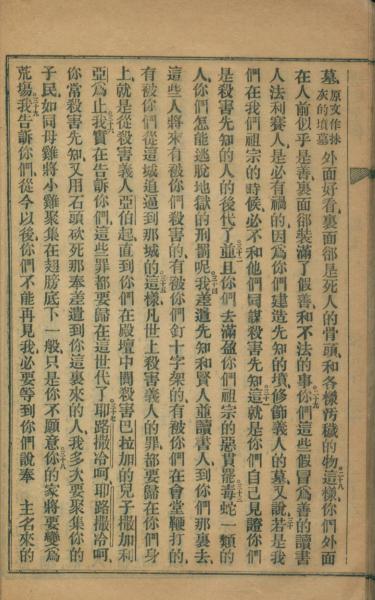 墓、原文作抹灰的墳墓外面好看、裏面卻是死人的骨頭、和各樣汚穢的物、二十八這樣、你們外面
在人前似乎是善、裏面卻裝滿了假善、和不法的事、二十九你們這些假冒爲善的讀書
人、法利賽人、是必有禍的、因爲你們建造先知的墳、修飾義人的墓、三十又說、若是我
們在我們祖宗的時候、必不和他們同謀殺害先知、三十一這就是你們自己見證、你們
是殺害先知的人的後代了、三十二並且你們去滿盈你們祖宗的惡貫罷、三十三毒蛇一類的
人、你們怎能逃脫地獄的刑罰呢、三十四我差遣先知和賢人並讀書人、到你們那裏去、
這些人將來有被你們殺害的、有被你們釘十字架的、有被你們在會堂鞭打的、
有被你們從這城追逼到那城的、三十五這樣、凡世上殺害義人的罪、都要歸在你們身
上、就是從殺害義人亞伯起、直到你們在殿壇中間殺害巴拉加的兒子撒加利
亞爲止、三十六我實在告訴你們、這些罪都要歸在這世代了、三十七耶路撒冷呵、耶路撒冷呵、
你常殺害先知、又用石頭砍死那奉差遣到你這裏來的人、我多次要聚集你的
子民、如同母雞將小雞聚集在翅膀底下一般、只是你不願意、三十八你的家將要變爲
荒場、三十九我告訴你們、從今以後、你們不能再見我、必要等到你們說、奉 主名來的